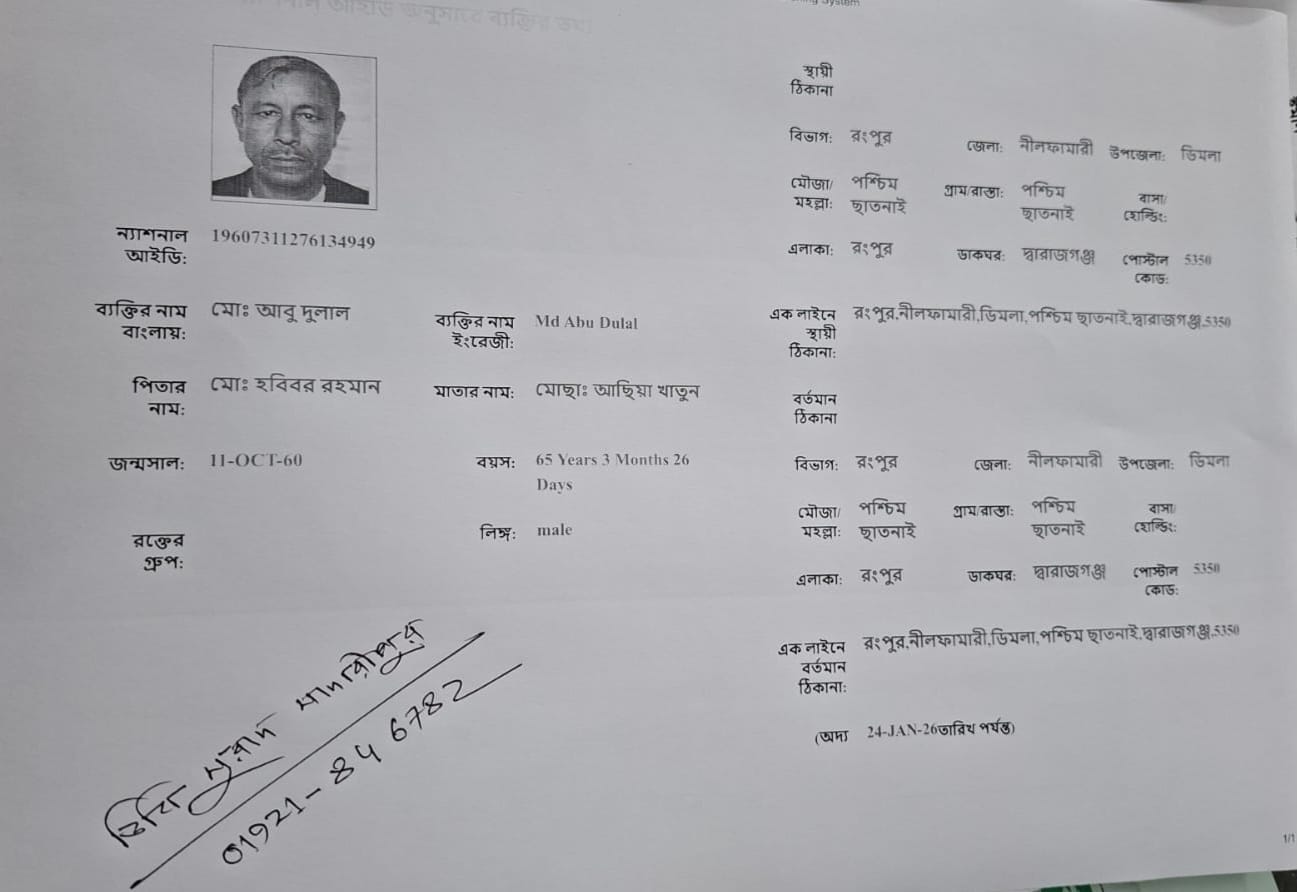 ন্যাশনাল আইডি অনুসারে ব্যক্তির তথ্য
ing System
ন্যাশনাল আইডি: 19607311276134949
ব্যক্তির নাম বাংলায়: মোঃ আবু দুলাল ব্যক্তির নাম ইংরেজী: Md Abu Dulal
পিতার নাম: মোঃ হবিবর রহমান মাতার নাম: মোছাঃ আছিয়া খাতুন
জন্মসাল: 11-OCT-60 বয়স: 65 Years 3 Months 26 Days
রক্তের গ্রুপ: লিঙ্গ: male
স্থায়ী ঠিকানা
বিভাগ: রংপুর জেলা: নীলফামারী উপজেলা: ডিমলা
মৌজা/মহল্লা: পশ্চিম ছাতনাই গ্রাম/রাস্তা: পশ্চিম ছাতনাই বাসা/হোল্ডিং:
এলাকা: রংপুর ডাকঘর: দ্বারাজগঞ্জ পোস্টাল কোড: 5350
এক লাইনে স্থায়ী ঠিকানা: রংপুর,নীলফামারী,ডিমলা,পশ্চিম ছাতনাই,দ্বারাজগঞ্জ,5350
বর্তমান ঠিকানা
বিভাগ: রংপুর জেলা: নীলফামারী উপজেলা: ডিমলা
মৌজা/মহল্লা: পশ্চিম ছাতনাই গ্রাম/রাস্তা: পশ্চিম ছাতনাই বাসা/হোল্ডিং:
এলাকা: রংপুর ডাকঘর: দ্বারাজগঞ্জ পোস্টাল কোড: 5350
এক লাইনে বর্তমান ঠিকানা: রংপুর,নীলফামারী,ডিমলা,পশ্চিম ছাতনাই,দ্বারাজগঞ্জ,5350
(অদ্য 24-JAN-26তারিখ পর্যন্ত)
মুরাদ মাদারীপুর
01921-846782
1/1